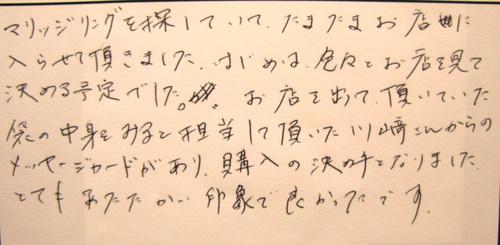 マリッジリングを探していて、たまたまお店に
入らせて頂きました。はじめは、色々とお店を見て
決める予定でした。お店を出て、頂いていた
袋の中身をみると担当して頂いた川崎さんからの
メッセージカードがあり、購入の決め手となりました。
とても あたたかい 印象で良かったです。